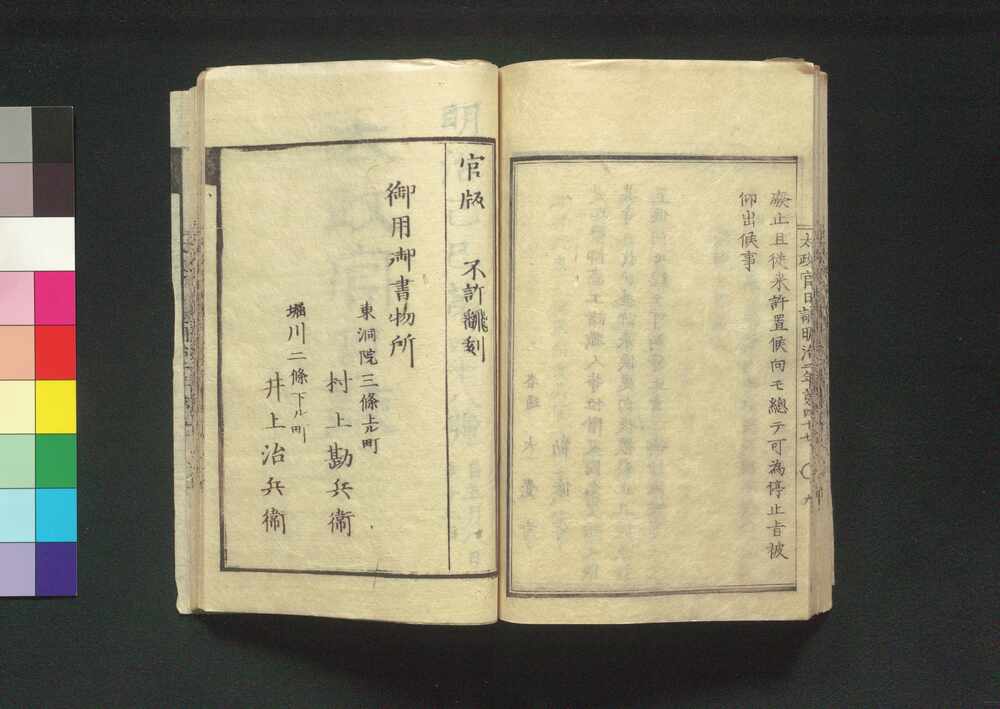 廢止且従来許置候向モ總テ可為停止旨被
仰出候事
太政官日誌明治二年第四十七
官版 不許翻刻
御用御書物所
東洞院三條上ル町
村上勘兵衞
堀川二條下ル町
井上治兵衞